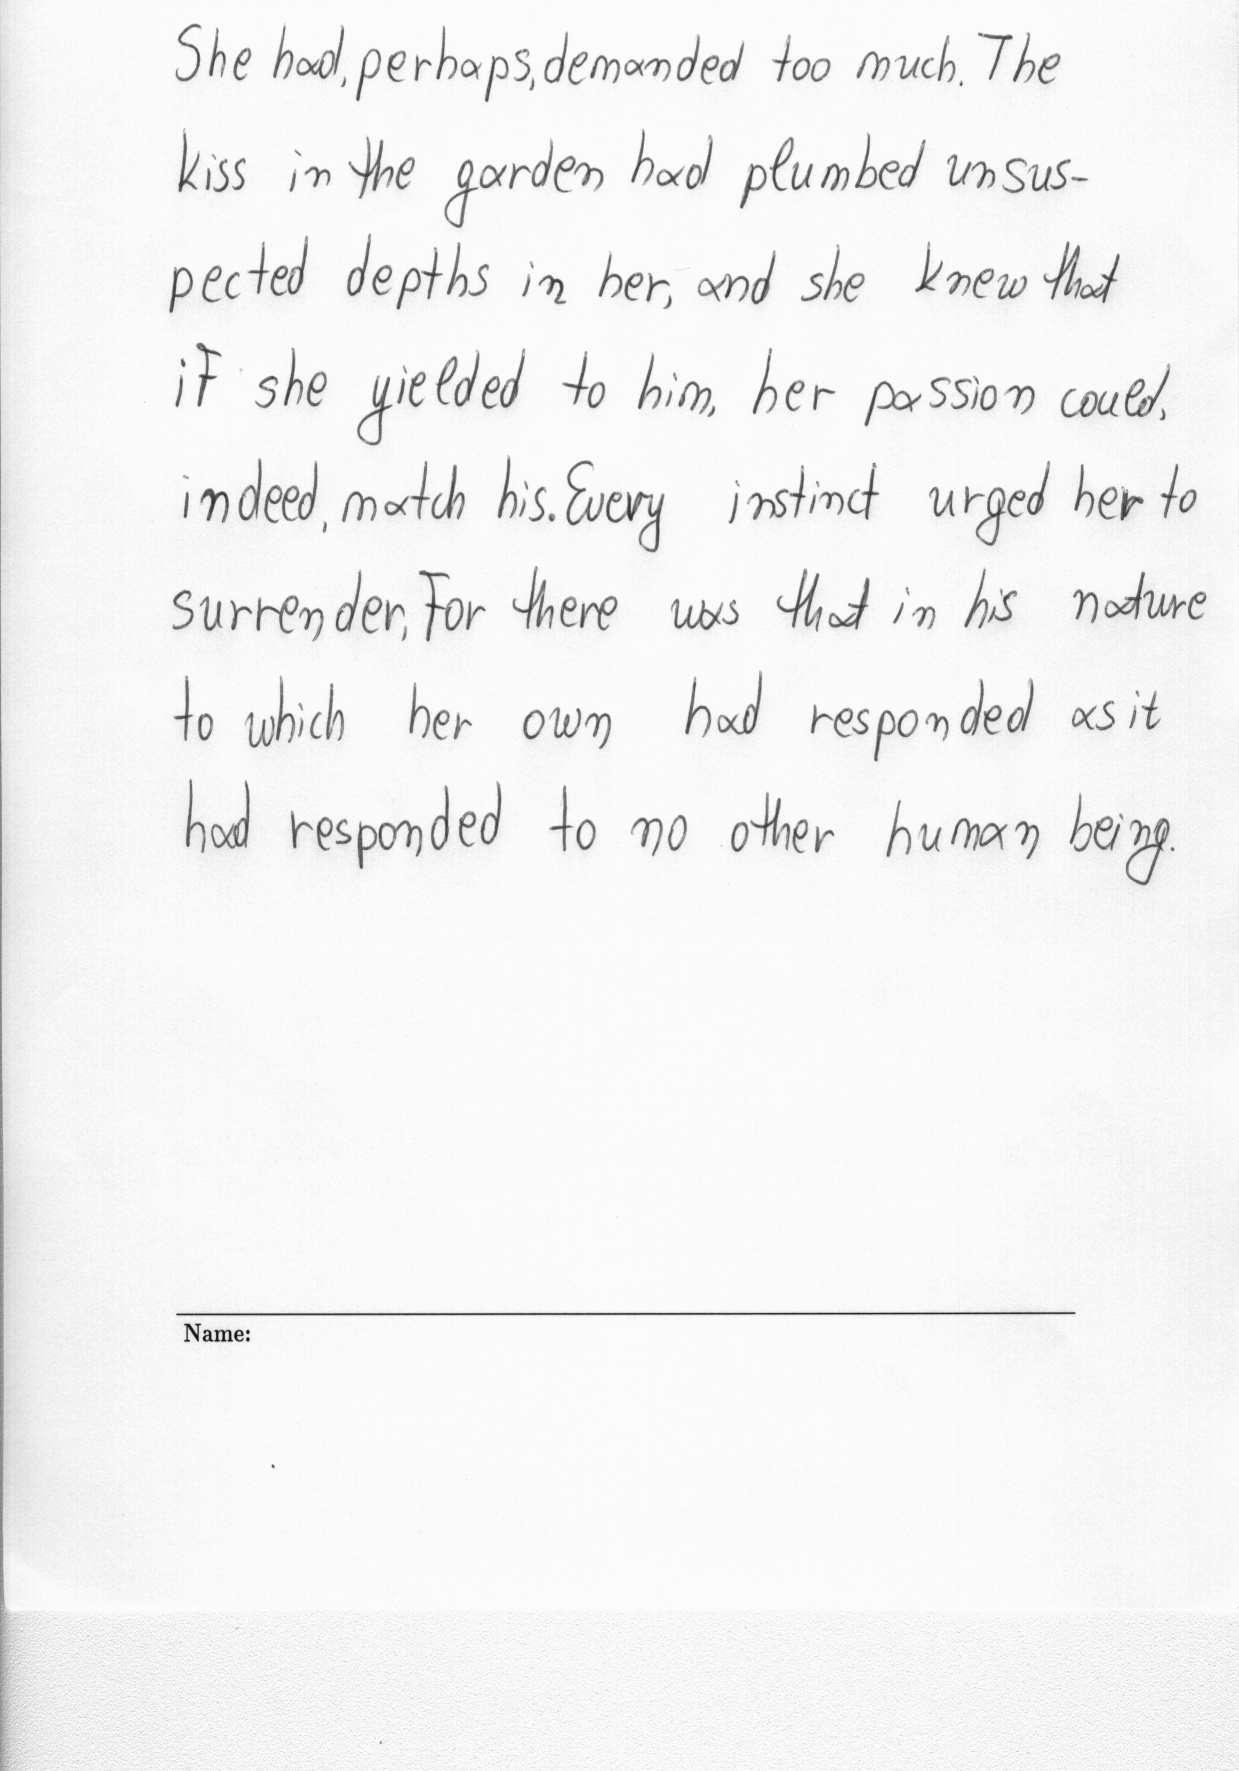 She had, perhaps, demanded too much. The
kiss in the garden had plumbed unsus-
pected depths in her, and she knew that
if she yielded to him, her passion could,
indeed, match his. Every instinct urged her to
surrender, For there was that in his nature
to which her own had responded as it
had responded to no other human being.
Name: